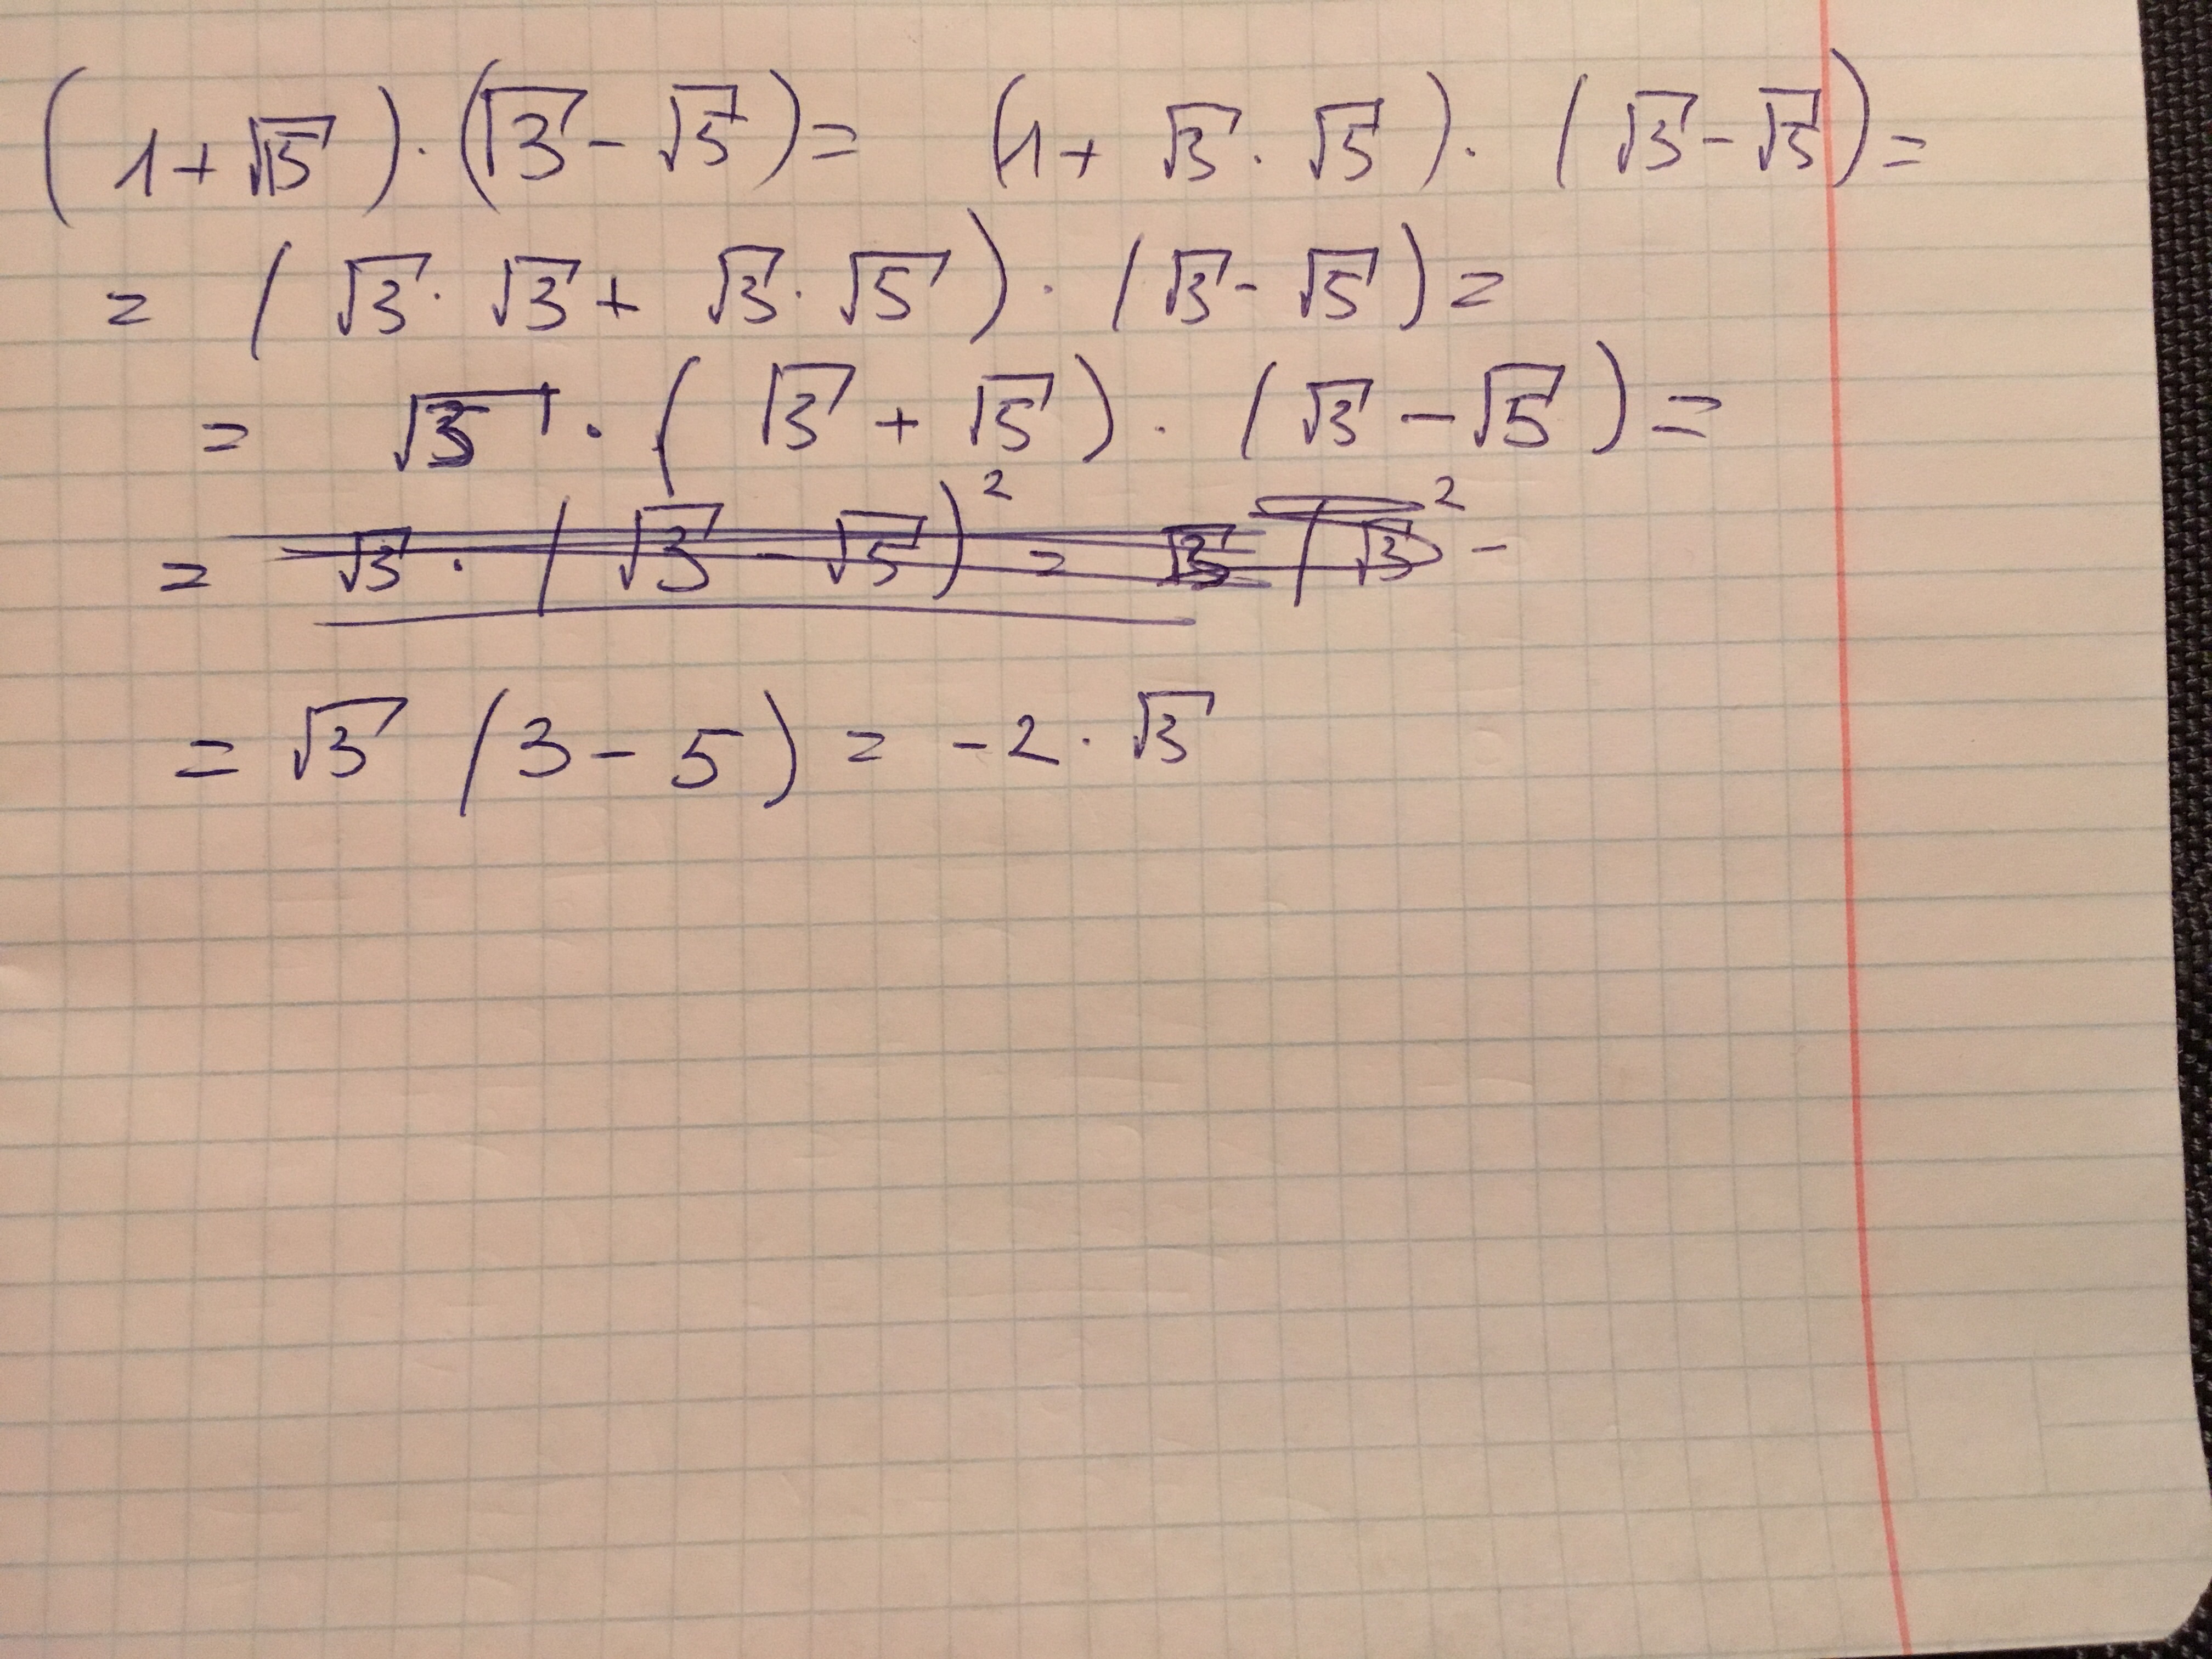 (1+√15)·(√3-√5)= (1+ √3·√5)·(√3-√5)=
= (√3·√3+ √3·√5)·(√3-√5)=
= √3·(√3+√5)·(√3-√5)=
= √3·(√3-√5)² = √3 (√3² -
= √3 (3-5) = -2·√3